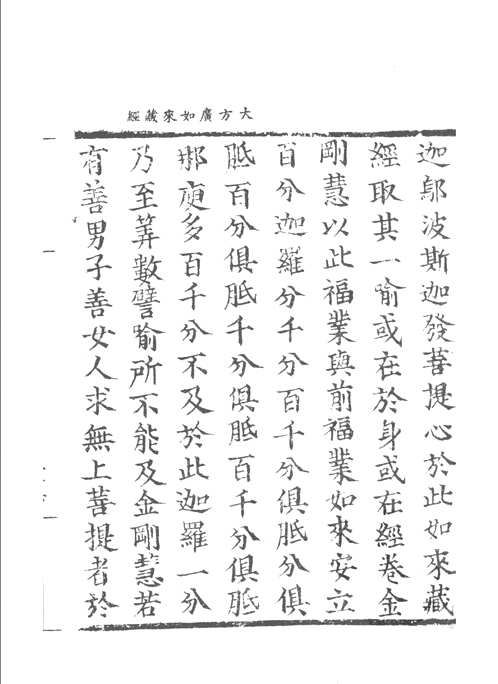 大方廣如來藏經
迦鄔波斯迦發菩提心於此如來藏
經取其一喻或在於身或在經卷金
剛慧以此福業與前福業如來安立
百分迦羅分千分百千分俱胝分俱
胝百分俱胝千分俱胝百千分俱胝
那庾多百千分不及於此迦羅一分
乃至筭數譬喻所不能及金剛慧若
有善男子善女人求無上菩提者於